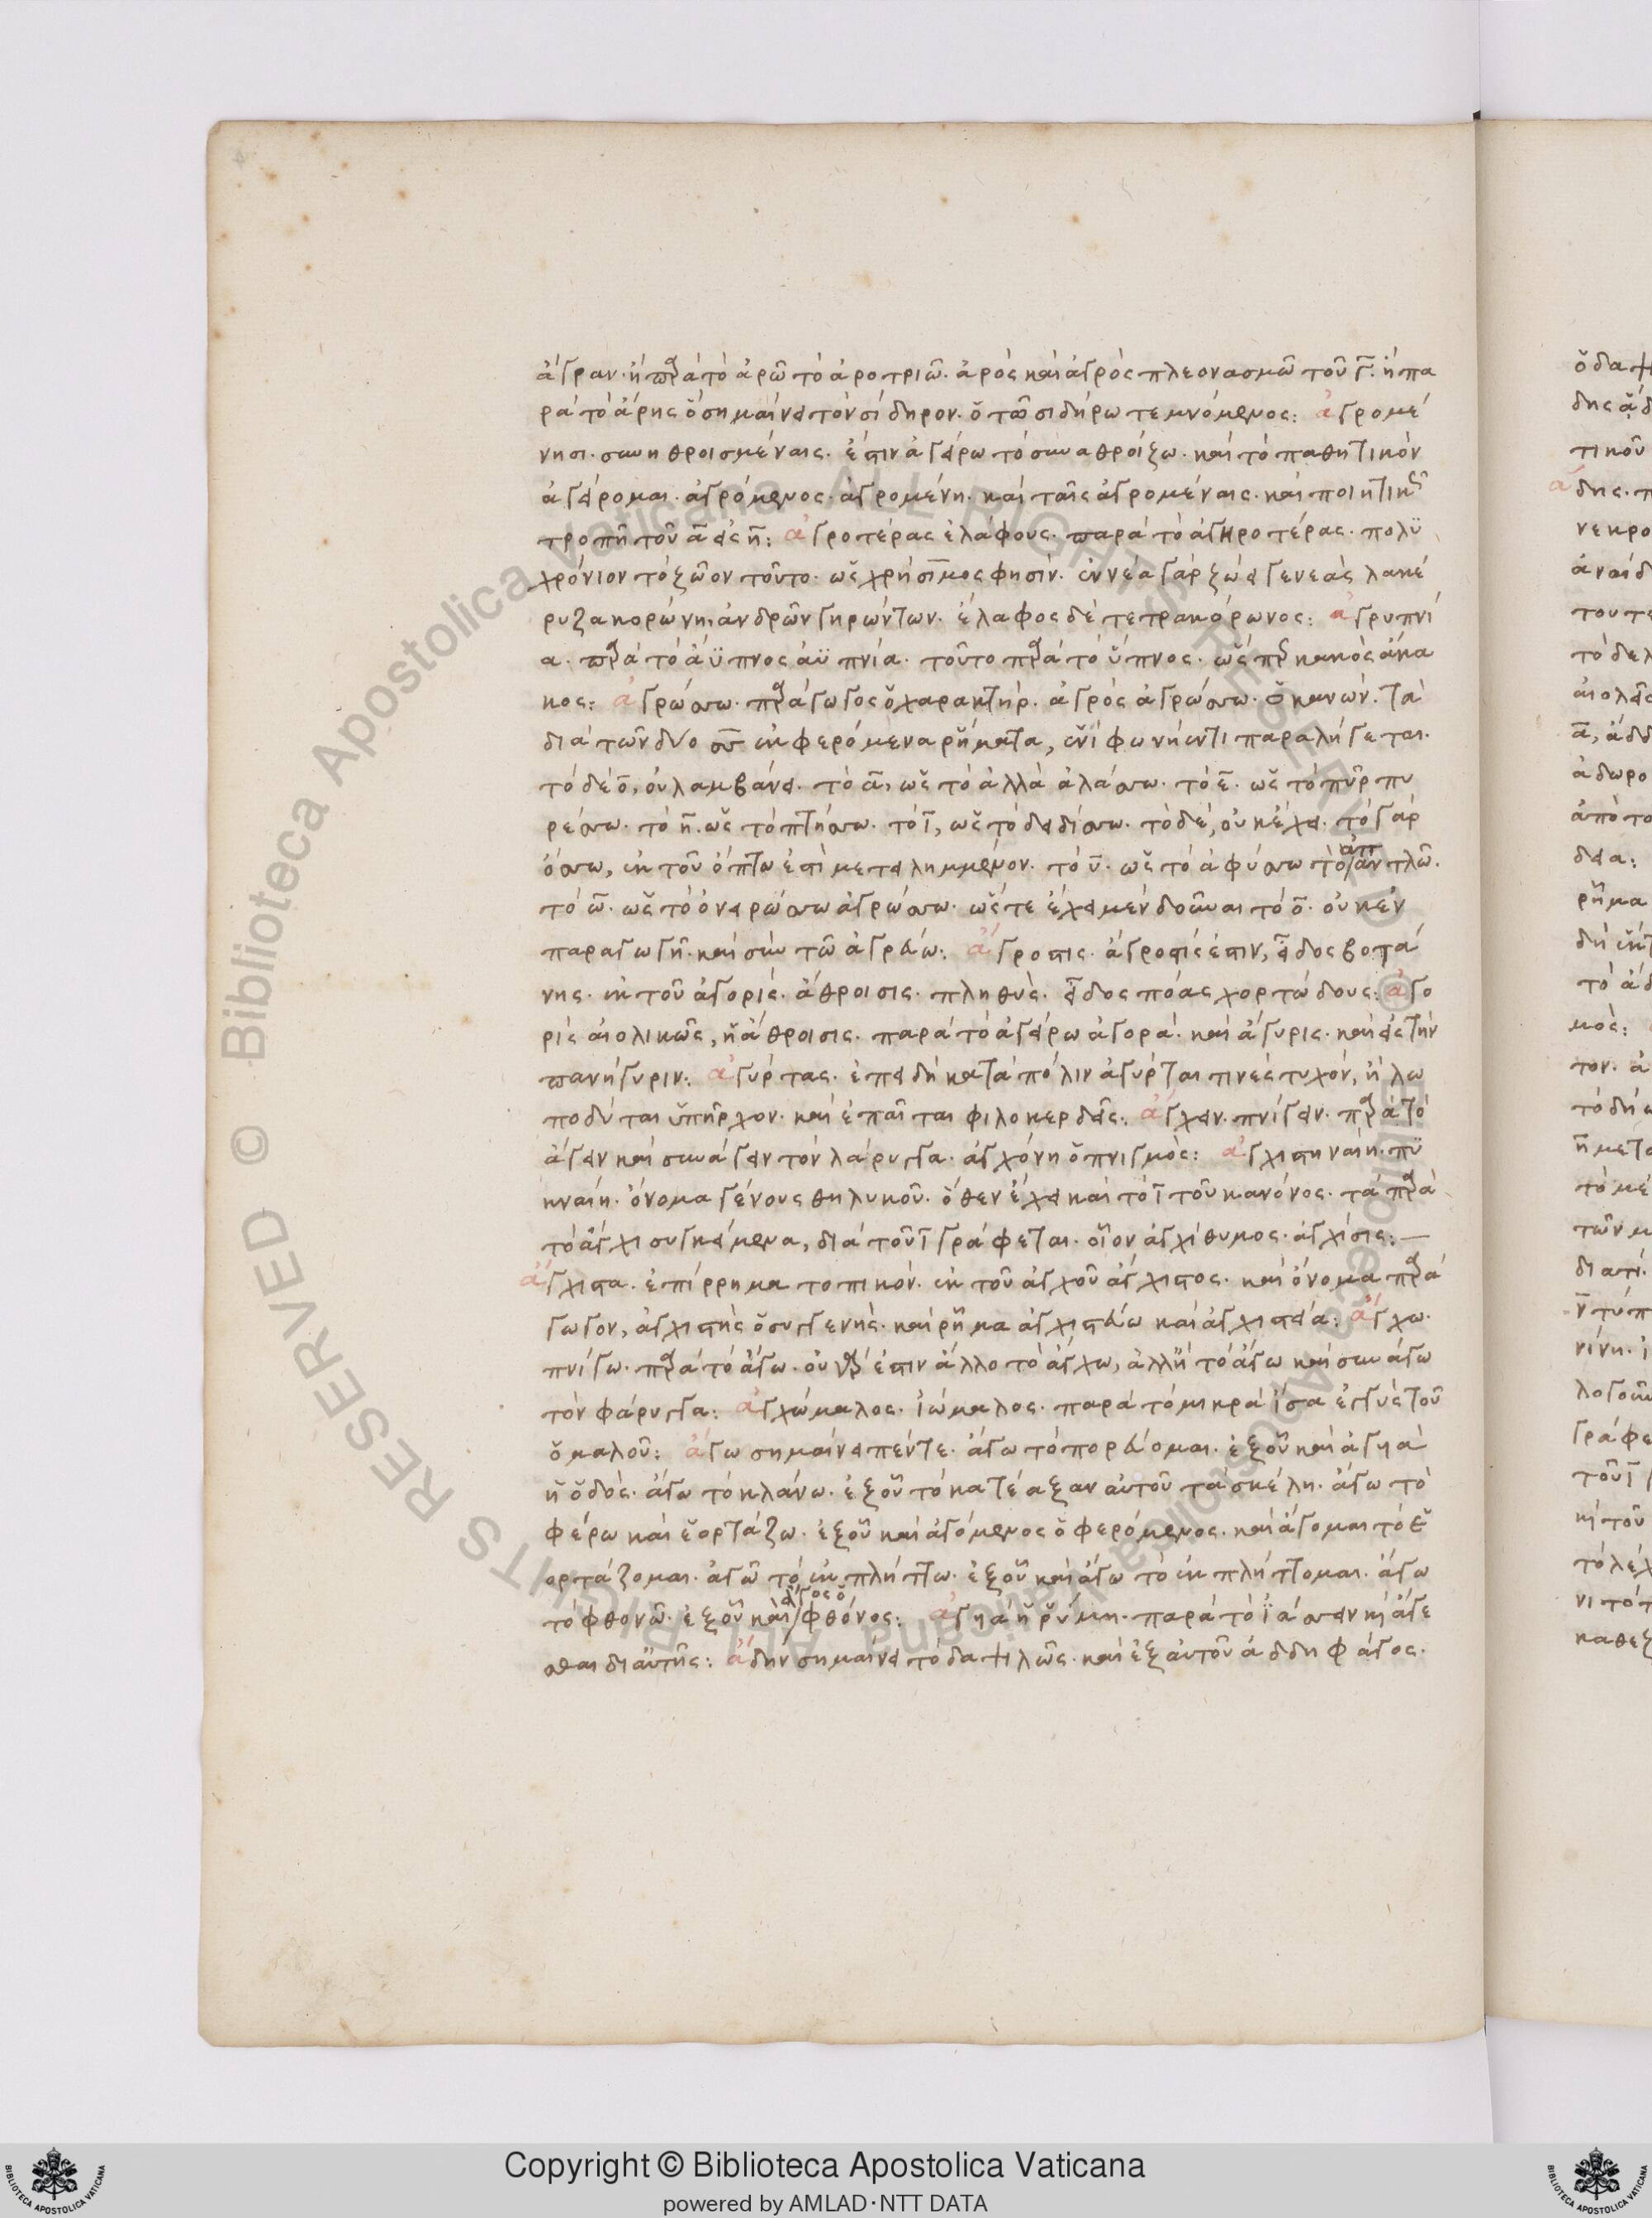 ἄγραν. ἢ παρὰ τὸ ἀρῶ τὸ ἀροτριῶ. ἀρὸς καὶ ἀγρὸς πλεονασμῶ τοῦ γ. ἢ πα
ρὰ τὸ ἄρης ὃ σημαίνει τὸν σίδηρον. ὁ τῶ σιδήρω τεμνόμενος: ἀγρομέ
νησι. συνηθροισμέναις. ἔστιν ἀγείρω τὸ συναθροίζω. καὶ τὸ παθητικὸν
ἀγείρομαι. ἀγρόμενος. ἀγρομένη. καὶ ταῖς ἀγρομέναις. καὶ ποιητικῶς
τροπῆ τοῦ α εἰς η: ἀγροτέρας ἐλάφους. παρὰ τὸ ἀγηροτέρας. πολϋ
χρόνιον τὸ ζῶον τοῦτο. ὡς χρήσιμος φησίν. ἐννέα γὰρ ζώει γενεὰς λακέ
ρυζα κορώνη, ἀνδρῶν γηρώντων. ἔλαφος δὲ τετρακόρωνος: ἀγρυπνί
α. παρὰ τὸ ἄϋπνος ἀϋπνία. τοῦτο παρὰ τὸ ὕπνος. ὡς παρὰ κακὸς ἄκα
κος: ἀγρώσσω. παράγωγος ὁ χαρακτήρ. ἀγρὸς ἀγρώσσω. ὁ κανών. τὰ
διὰ τῶν δύο σσ ἐκφερόμενα ρήματα, ἑνὶ φωνήεντι παραλήγεται.
τὸ δὲ ο, οὐ λαμβάνει. τὸ α, ὡς τὸ ἀλλὰ ἀλάσσω. τὸ ε. ὡς τὸ πῦρ πυ
ρέσσω. τὸ η. ὡς τὸ πτήσσω. τὸ ι, ὡς τὸ δειδίσσω. τὸ δὲ, οὐκ ἔχει. τὸ γὰρ
ὄσσω, ἐκ τοῦ ὄπτω ἐστὶ μετειλημμένον. τὸ υ. ὡς τὸ ἀφύσσω τὸ ἀπαντλῶ.
τὸ ω. ὡς τὸ ὀνειρώσσω ἀγρώσσω. ὥστε ἔχει μὲν δοῦναι τὸ ο. οὐκ ἐν
παραγωγῆ. καὶ σὺν τῶ ἀγρεύω: ἄγροστις. ἄγροστίς ἐστιν, εἶδος βοτά
νης. ἐκ τοῦ ἀγορίς. ἄθροισις. πληθὺς. εἶδος πόας χορτώδους: ἀγο
ρὶς αἰολικῶς, ἡ ἄθροισις. παρὰ τὸ ἀγείρω ἀγορά. καὶ ἄγυρις. καὶ εἰς τὴν
πανήγυριν: ἀγύρτας. ἐπειδὴ κατὰ πόλιν ἀγύρται τινὲς τυχόν, ἢ λω
ποδύται ὑπῆρχον. καὶ ἐπαῖται φιλοκερδεῖς: ἄγχειν. πνίγειν. παρὰ τὸ
ἄγειν καὶ συνάγειν τὸν λάρυγγα. ἀγχόνη ὁ πνιγμός: ἀγχιστηναίη. πϋ
κναίη. ὄνομα γένους θηλυκοῦ. ὅθεν ἔχει καὶ τὸ ι τοῦ κανόνος. τὰ παρὰ
τὸ ἄγχι συγκείμενα, διὰ τοῦ ι γράφεται. οἷον ἀγχίθυμος. ἀγχίσης:—
ἄγχιστα. ἐπίρρημα τοπικόν. ἐκ τοῦ ἀγχοῦ ἄγχιστος. καὶ ὄνομα παρά
γωγον, ἀγχιστὴς ὁ συγγενής. καὶ ρῆμα ἀγχιστεύω καὶ ἀγχιστεία: ἄγχω.
πνίγω. παρὰ τὸ ἄγω. οὐ γάρ ἐστιν ἄλλο τὸ ἄγχω, ἀλλ' ἢ τὸ ἄγω καὶ συνάγω
τὸν φάρυγγα: ἀγχώμαλος. ἰώμαλος. παρὰ τὸ μικρὰ ἴσα ἐγγὺς τοῦ
ὁμαλοῦ: ἄγω σημαίνει πέντε. ἄγω τὸ πορεύομαι. ἐξ οὗ καὶ ἀγυιὰ
ἡ ὁδός. ἄγω τὸ κλάνω. ἐξ οὗ τὸ κατέαξαν αὐτοῦ τὰ σκέλη. ἄγω τὸ
φέρω καὶ ἑορτάζω. ἐξ οὗ καὶ ἀγόμενος ὁ φερόμενος. καὶ ἄγομαι τὸ ἑ
ορτάζομαι. ἀγῶ τὸ ἐκπλήττω. ἐξ οὗ καὶ ἄγω τὸ ἐκπλήττομαι. ἄγω
τὸ φθονῶ. ἐξ οὗ καὶ ἄγος ὁ φθόνος: ἀγυιά ἡ ρύμη. παρὰ τὸ ϊάσσειν κὶ ἄγε
σθαι δι' αὐτῆς: ἄδην σημαίνει τὸ δαψιλῶς. καὶ ἐξ αὐτοῦ ἀδδηφάγος.
Copyright © Biblioteca Apostolica Vaticana
powered by AMLAD・NTT DATA